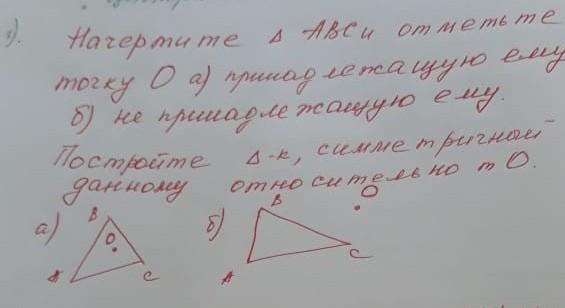 1). Начертите Δ ABC и отметьте
точку O а) принадлежащую ему
б) не принадлежащую ему.
Постройте Δ-к, симметричной
данному относительно т O.
а) B O A C
б) B O A C